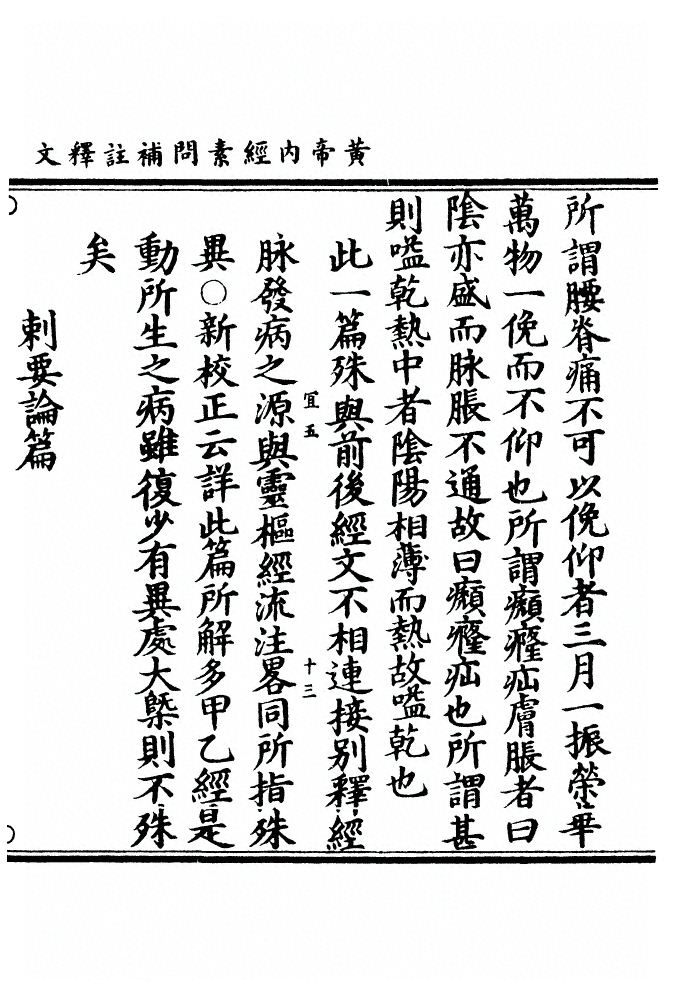 黃帝內經素問補註釋文
所謂腰脊痛不可以俛仰者三月一振榮華
萬物一俛而不仰也所謂㿗癃疝膚脹者曰
陰亦盛而脉脹不通故曰㿗癃疝也所謂甚
則嗌乾熱中者陰陽相薄而熱故嗌乾也
此一篇殊與前後經文不相連接别釋經
宜五
十三
脉發病之源與靈樞經流注畧同所指殊
異○新校正云詳此篇所解多甲乙經是
動所生之病雖復少有異處大槩則不殊
矣
刺要論篇